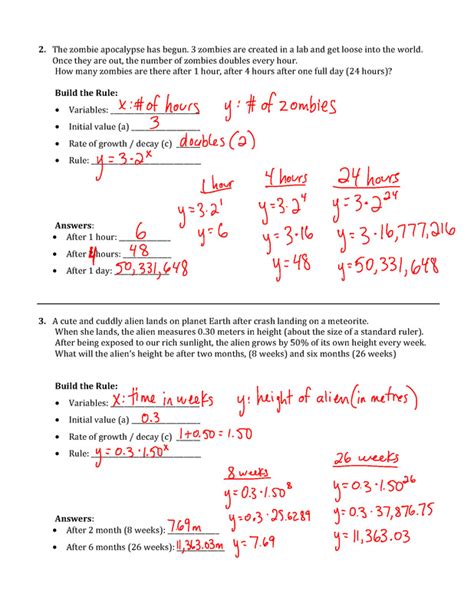 2. The zombie apocalypse has begun. 3 zombies are created in a lab and get loose into the world.
Once they are out, the number of zombies doubles every hour.
How many zombies are there after 1 hour, after 4 hours after one full day (24 hours)?
Build the Rule:
• Variables: x: # of hours y: # of zombies
• Initial value (a) 3
• Rate of growth / decay (c) doubles (2)
• Rule: y = 3·2^x
1 hour 4 hours 24 hours
y=3·2^1 y=3·2^4 y=3·2^24
y=6 y=3·16 y=3·16,777,216
y=48 y=50,331,648
Answers:
• After 1 hour: 6
• After 4 hours: 48
• After 1 day: 50,331,648
3. A cute and cuddly alien lands on planet Earth after crash landing on a meteorite.
When she lands, the alien measures 0.30 meters in height (about the size of a standard ruler).
After being exposed to our rich sunlight, the alien grows by 50% of its own height every week.
What will the alien's height be after two months, (8 weeks) and six months (26 weeks)
Build the Rule:
• Variables: x: time in weeks y: height of alien (in metres)
• Initial value (a) 0.3
• Rate of growth / decay (c) 1+0.50 = 1.50
• Rule: y = 0.3·1.50^x
8 weeks 26 weeks
y=0.3·1.50^8 y=0.3·1.50^26
y=0.3·25.6289 y=0.3·37,876.75
y=7.69 y=11,363.03
Answers:
• After 2 month (8 weeks): 7.69m
• After 6 months (26 weeks): 11,363.03m